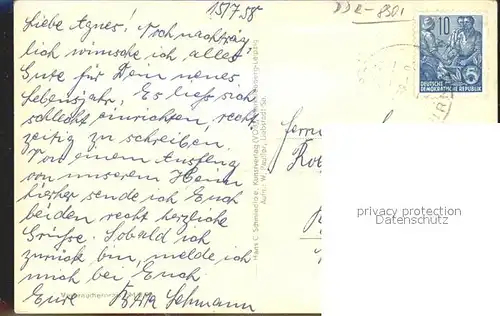 15/7.58
DDR-8301
Liebe Agnes! Noch nachträg-
lich wünsche ich alles
Gute für Dein neues
Lebensjahr. Es ließ sich
schlecht einrichten, recht-
zeitig zu schreiben.
Von einem Ausflug
von unserem Heim
hierher sende ich Euch
beiden recht herzliche
Grüße. Sobald ich
zurück bin, melde ich
mich bei Euch
Eure Lehmann
10
5
DEUTSCHE
DEMOKRATISCHE REPUBLIK
privacy protection
Datenschutz